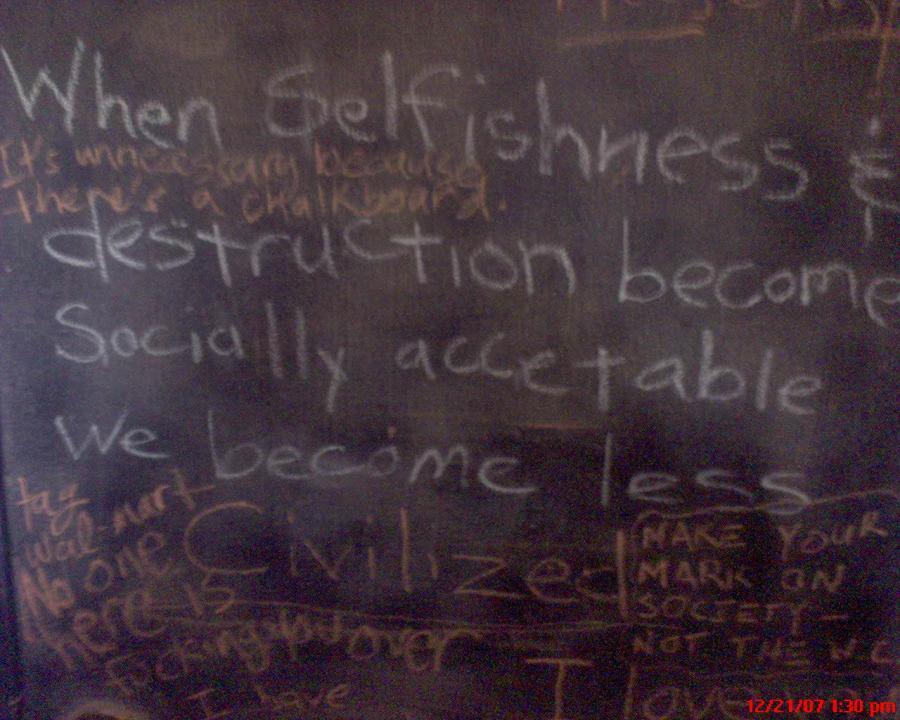 When Selfishness &
It's unnecessary because
there's a chalkboard.
destruction become
Socially accetable
We become less
Civilized
tag
Wal-mart
No one
here is
fucking over
I have
MAKE YOUR
MARK ON
SOCIETY —
NOT THE
I love
12/21/07 1:30 pm